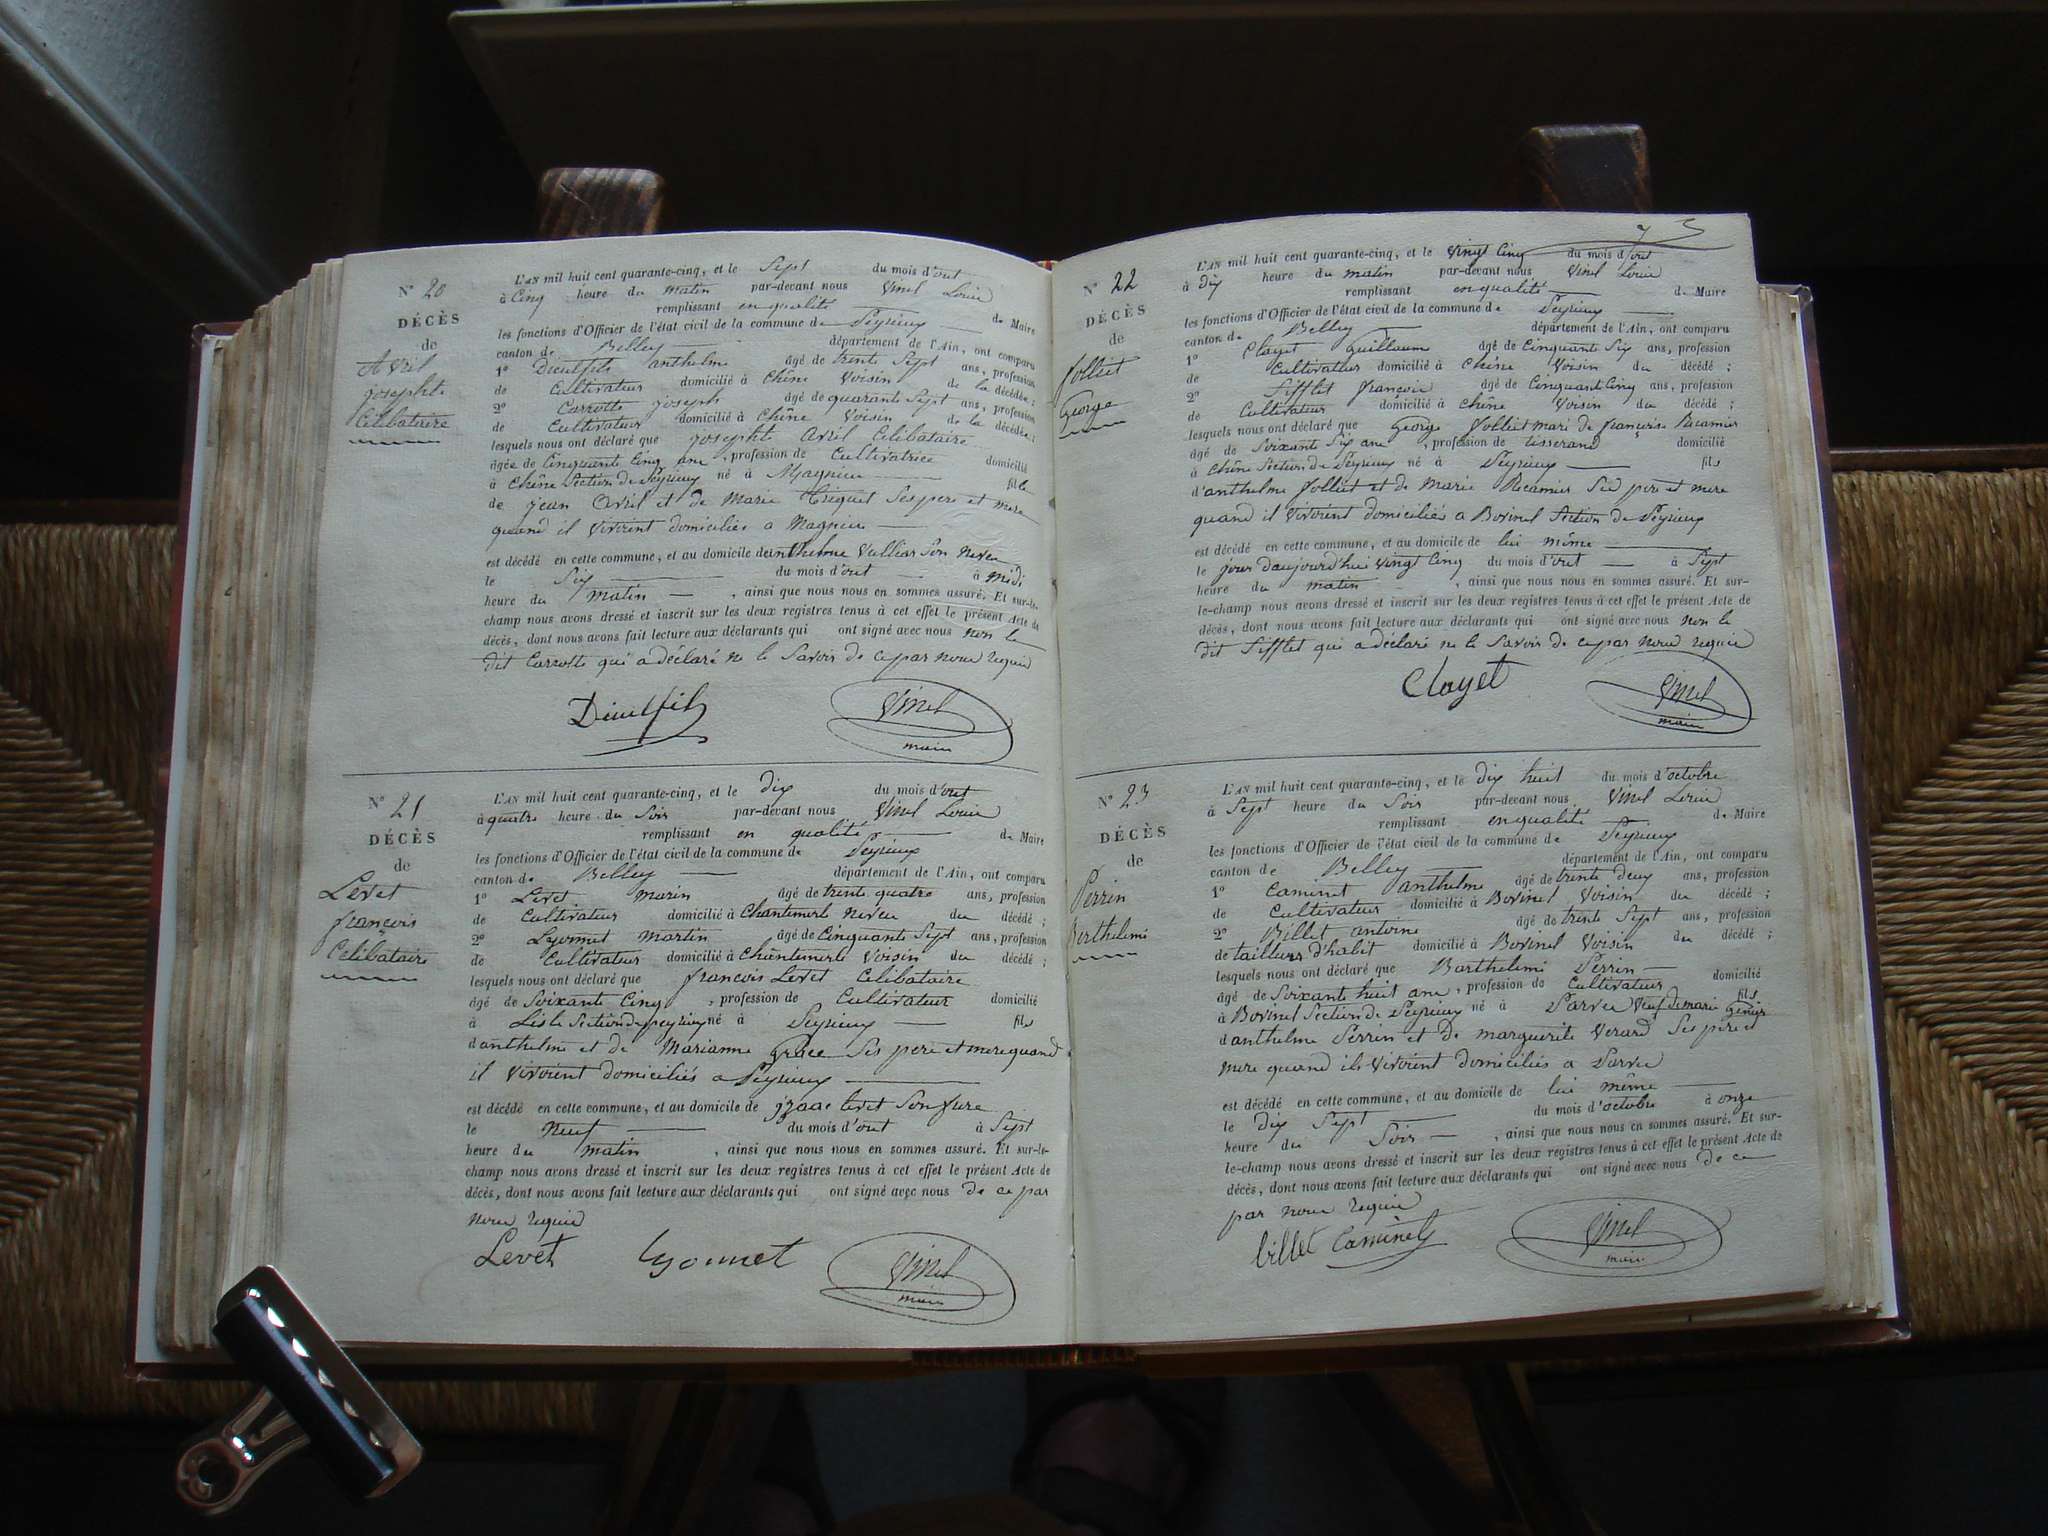 N° 20
DÉCÈS
de
Avril
josephte
Célibataire
L'AN mil huit cent quarante-cinq, et le Sept du mois d'out
à Cinq heure du matin par-devant nous Vinel Louis
remplissant en qualité de Maire
les fonctions d'Officier de l'état civil de la commune de Peyrieux
canton de Belley département de l'Ain, ont comparu
1° Dieulfils anthelme âgé de trente Sept ans, profession
de Cultivateur domicilié à Chêne Voisin de la décédée ;
2° Carrotte joseph âgé de quarante Sept ans, profession
de Cultivateur domicilié à Chêne Voisin de la décédée ;
lesquels nous ont déclaré que josephte Avril Célibataire
âgée de Cinquante Cinq ans, profession de Cultivatrice domicilié
à Chêne Section de Peyrieux né à Magnieu fille
de jean Avril et de Marie Triquet Ses pere et mere
quand il vivoient domiciliés a Magnieu
est décédé en cette commune, et au domicile de anthelme Vullier Son Neveu
le Six du mois d'out à midi
heure du matin, ainsi que nous nous en sommes assuré. Et sur-le-
champ nous avons dressé et inscrit sur les deux registres tenus à cet effet le présent Acte de
décès, dont nous avons fait lecture aux déclarants qui ont signé avec nous non le
dit Carrotte qui a déclaré ne le Savoir de ce par nous requis
Dieulfils
Vinel
maire
N° 21
DÉCÈS
de
Levet
françois
Célibataire
L'AN mil huit cent quarante-cinq, et le dix du mois d'out
à quatre heure du Soir par-devant nous Vinel Louis
remplissant en qualité de Maire
les fonctions d'Officier de l'état civil de la commune de Peyrieux
canton de Belley département de l'Ain, ont comparu
1° Levet Marin âgé de trente quatre ans, profession
de Cultivateur domicilié à Chantemerle neveu du décédé ;
2° Lyonnet Martin âgé de Cinquante Sept ans, profession
de Cultivateur domicilié à Chantemerle Voisin du décédé ;
lesquels nous ont déclaré que françois Levet Célibataire
âgé de Soixante Cinq, profession de Cultivateur domicilié
à Lisle Section de peyrieux né à Peyrieux fils
d'anthelme et de Marianne Grace Ses pere et mere quand
il vivoient domiciliés a Peyrieux
est décédé en cette commune, et au domicile de Levet Son frere
le Neuf du mois d'out à Sept
heure du matin, ainsi que nous nous en sommes assuré. Et sur-le-
champ nous avons dressé et inscrit sur les deux registres tenus à cet effet le présent Acte de
décès, dont nous avons fait lecture aux déclarants qui ont signé avec nous de ce par
nous requis
Levet Lyonnet Vinel
maire
N° 22
DÉCÈS
de
Jolliet
George
L'AN mil huit cent quarante-cinq, et le Vingt Cinq du mois d'out
à dix heure du matin par-devant nous Vinel Louis
remplissant en qualité de Maire
les fonctions d'Officier de l'état civil de la commune de Peyrieux
canton de Belley département de l'Ain, ont comparu
1° Clayet Guillaume âgé de Cinquante Six ans, profession
de Cultivateur domicilié à Chêne Voisin du décédé ;
2° Sifflet françois âgé de Cinquante Cinq ans, profession
de Cultivateur domicilié à Chêne Voisin du décédé ;
lesquels nous ont déclaré que George Jolliet mari de françoise Récamier
âgé de Soixante Six ans, profession de tisserand domicilié
à Chêne Section de Peyrieux né à Peyrieux fils
d'anthelme Jolliet et de Marie Récamier Ses pere et mere
quand il vivoient domiciliés a Bovinel Section de Peyrieux
est décédé en cette commune, et au domicile de lui même
le jour d'aujourd'hui Vingt Cinq du mois d'out à Sept
heure du matin, ainsi que nous nous en sommes assuré. Et sur-
le-champ nous avons dressé et inscrit sur les deux registres tenus à cet effet le présent Acte de
décès, dont nous avons fait lecture aux déclarants qui ont signé avec nous non le
dit Sifflet qui a déclaré ne le Savoir de ce par nous requis
Clayet Vinel
maire
N° 23
DÉCÈS
de
Perrin
Berthelemi
L'AN mil huit cent quarante-cinq, et le dix huit du mois d'octobre
à Sept heure du Soir par-devant nous Vinel Louis
remplissant en qualité de Maire
les fonctions d'Officier de l'état civil de la commune de Peyrieux
canton de Belley département de l'Ain, ont comparu
1° Caminet anthelme âgé de trente deux ans, profession
de Cultivateur domicilié à Bovinel Voisin du décédé ;
2° Billet antoine âgé de trente Sept ans, profession
de tailleur d'habit domicilié à Bovinel Voisin du décédé ;
lesquels nous ont déclaré que Barthelemi Perrin domicilié
âgé de Soixante huit ans, profession de Cultivateur fils
à Bovinel Section de Peyrieux né à Parves Veuf de marie
d'anthelme Perrin et de marguerite Verard Ses pere et
mere quand ils vivoient domiciliés a Parves
est décédé en cette commune, et au domicile de lui même
le dix Sept du mois d'octobre à onze
heure du Soir, ainsi que nous nous en sommes assuré. Et sur-
le-champ nous avons dressé et inscrit sur les deux registres tenus à cet effet le présent Acte de
décès, dont nous avons fait lecture aux déclarants qui ont signé avec nous de ce
par nous requis
billet Caminet Vinel
maire